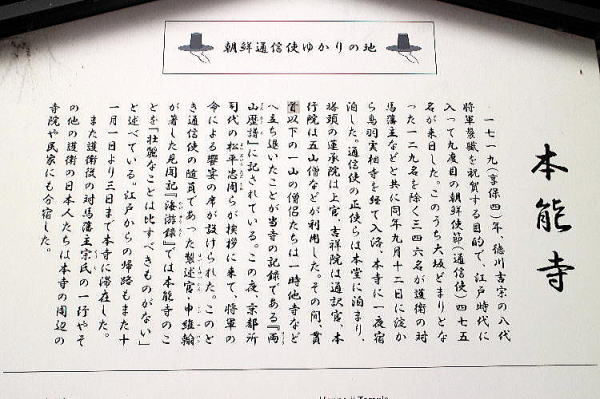 朝鮮通信使ゆかりの地
本能寺
一七一九(享保四)年、徳川吉宗の八代
将軍襲職を祝賀する目的で、江戸時代に
入って九度目の朝鮮使節(通信使)四七五
名が来日した。このうち大坂どまりとな
った一二九名を除く三四六名が護衛の対
馬藩主などと共に同年九月十二日に淀か
ら鳥羽実相寺を経て入洛、本寺に一夜宿
泊した。通信使の正使らは本堂に泊まり、
塔頭の蓮承院は上官、吉祥院は通訳官、本
行院は五山僧などが利用した。その間、貫
首以下の一山の僧侶たちは一時他寺など
へ立ち退いたことが当寺の記録である『両
山歴譜』に記されている。この夜、京都所
司代の松平忠周らが挨拶に来て、将軍の
命令による饗宴の席が設けられた。このと
き通信使の随員であった製述官・申維翰
が著した見聞記『海游録』では本能寺のこ
とを「壮麗なことは比すべきものがない」
と述べている。江戸からの帰路もまた十
一月一日より三日まで本寺に滞在した。
また護衛役の対馬藩主宗氏の一行やそ
の他の護衛の日本人たちは本寺の周辺の
寺院や民家にも分宿した。